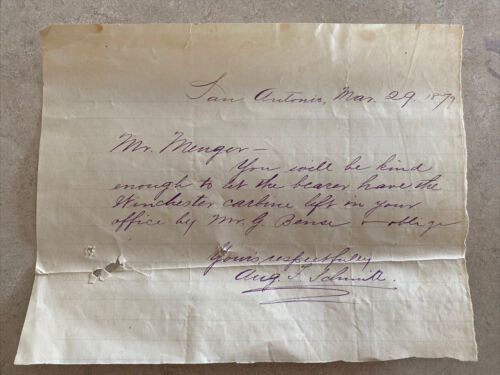 San Antonio, Mar. 29. 1879
Mr. Menger -
You will be kind
enough to let the bearer have the
Winchester carbine left in your
office by Mr. G. Bense & oblige
Yours respectfully
Aug. S. Schmidt.